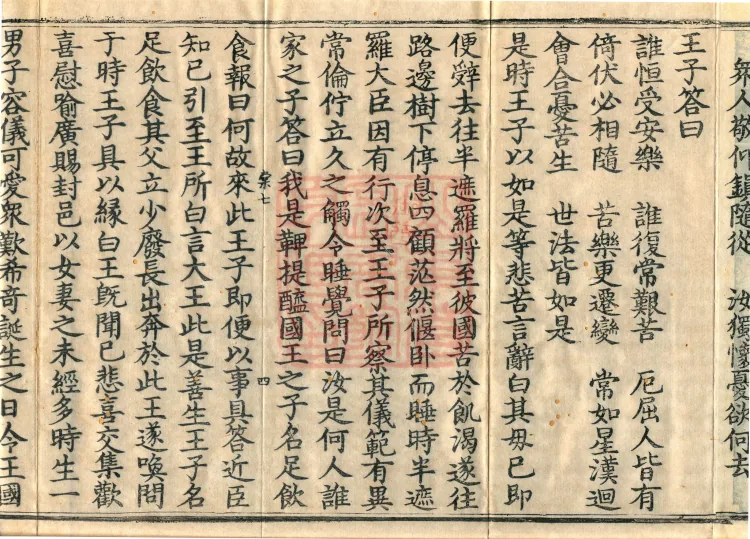 衆人敬何鎮隨從　汝獨懷憂欲何去
王子荅曰
誰恒受安樂　誰復常艱苦　厄屈人皆有
倚伏必相隨　苦樂更遷變　常如星漢迴
會合憂苦生　世法皆如是
是時王子以如是等悲苦言辭白其母已即
便辤去往半遮羅將至彼國苦於飢渴遂往
路邊樹下停息四顧茫然偃卧而睡時半遮
羅大臣因有行次至王子所察其儀範有異
常倫佇立久之觸令睡覺問曰汝是何人誰
家之子荅曰我是鞞提醯國王之子名足飲
棠七　四
食報曰何故來此王子即便以事具荅近臣
知已引至王所白言大王此是善生王子名
足飲食其父立少廢長出奔於此王遂喚問
于時王子具以緣白王旣聞已悲喜交集歡
喜慰喻廣賜封邑以女妻之未經多時生一
男子容儀可愛衆歎希奇誕生之日令王國